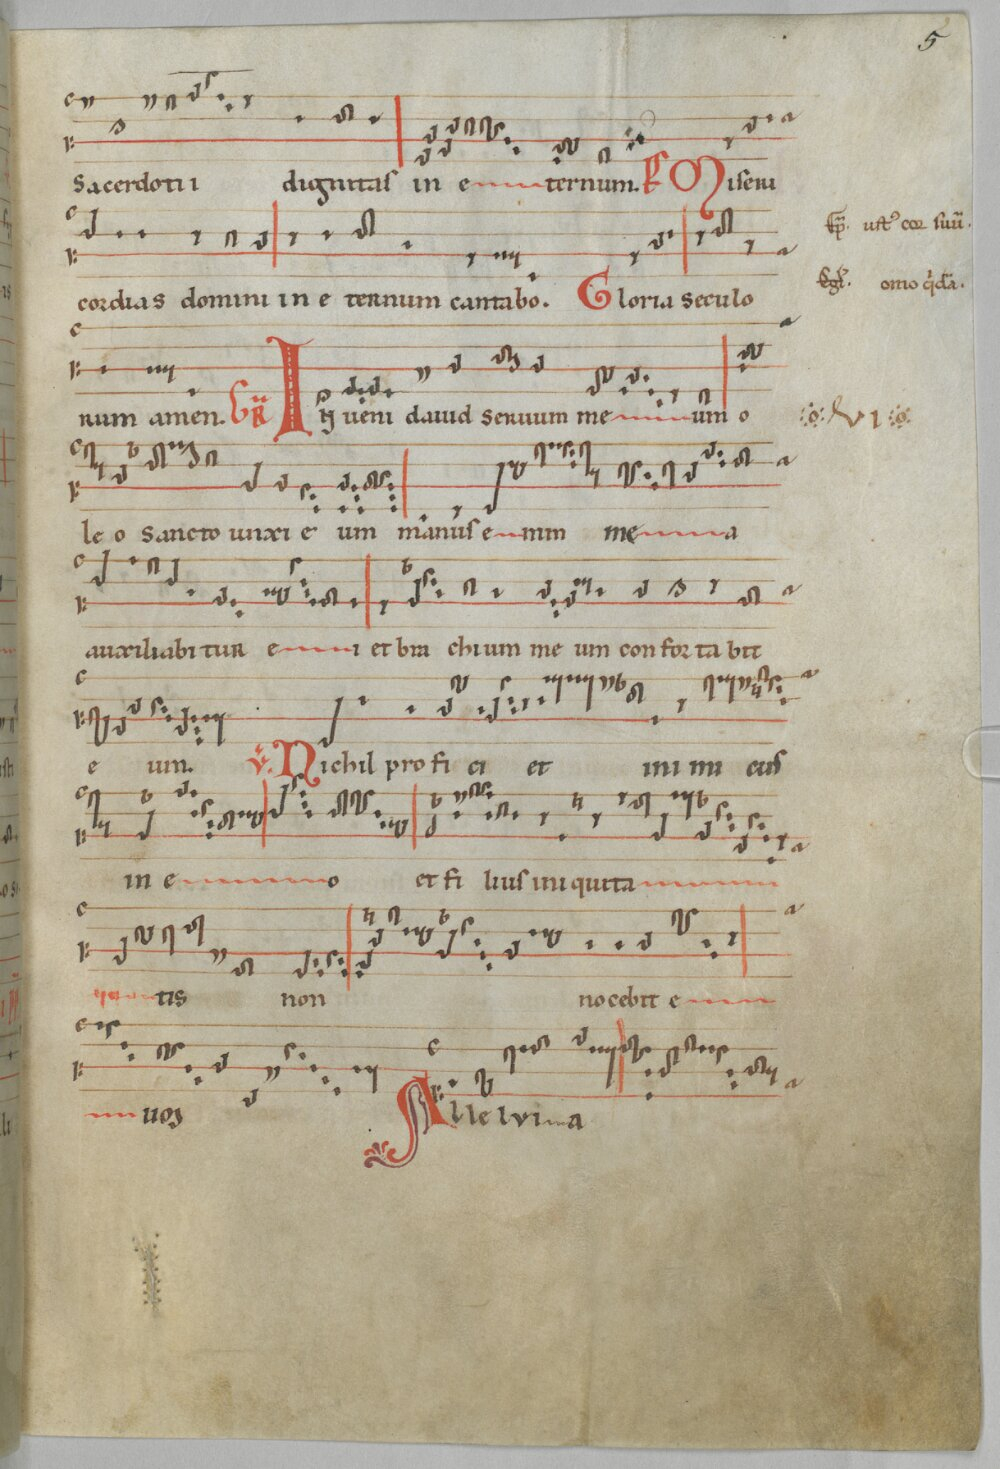 5
sacerdotii dignitas in eternum. Ps Miseri
cordias domini in eternum cantabo. Gloria seculo
rum amen. GR Inveni david servum meum o
leo sancto unxi eum manus enim mea
auxiliabitur ei et brachium meum confortabit
eum. V. Nichil proficiet inimicus
in eo et filius iniquita
tis non nocebit e
i uos
Allelvia
cor suu.
VI